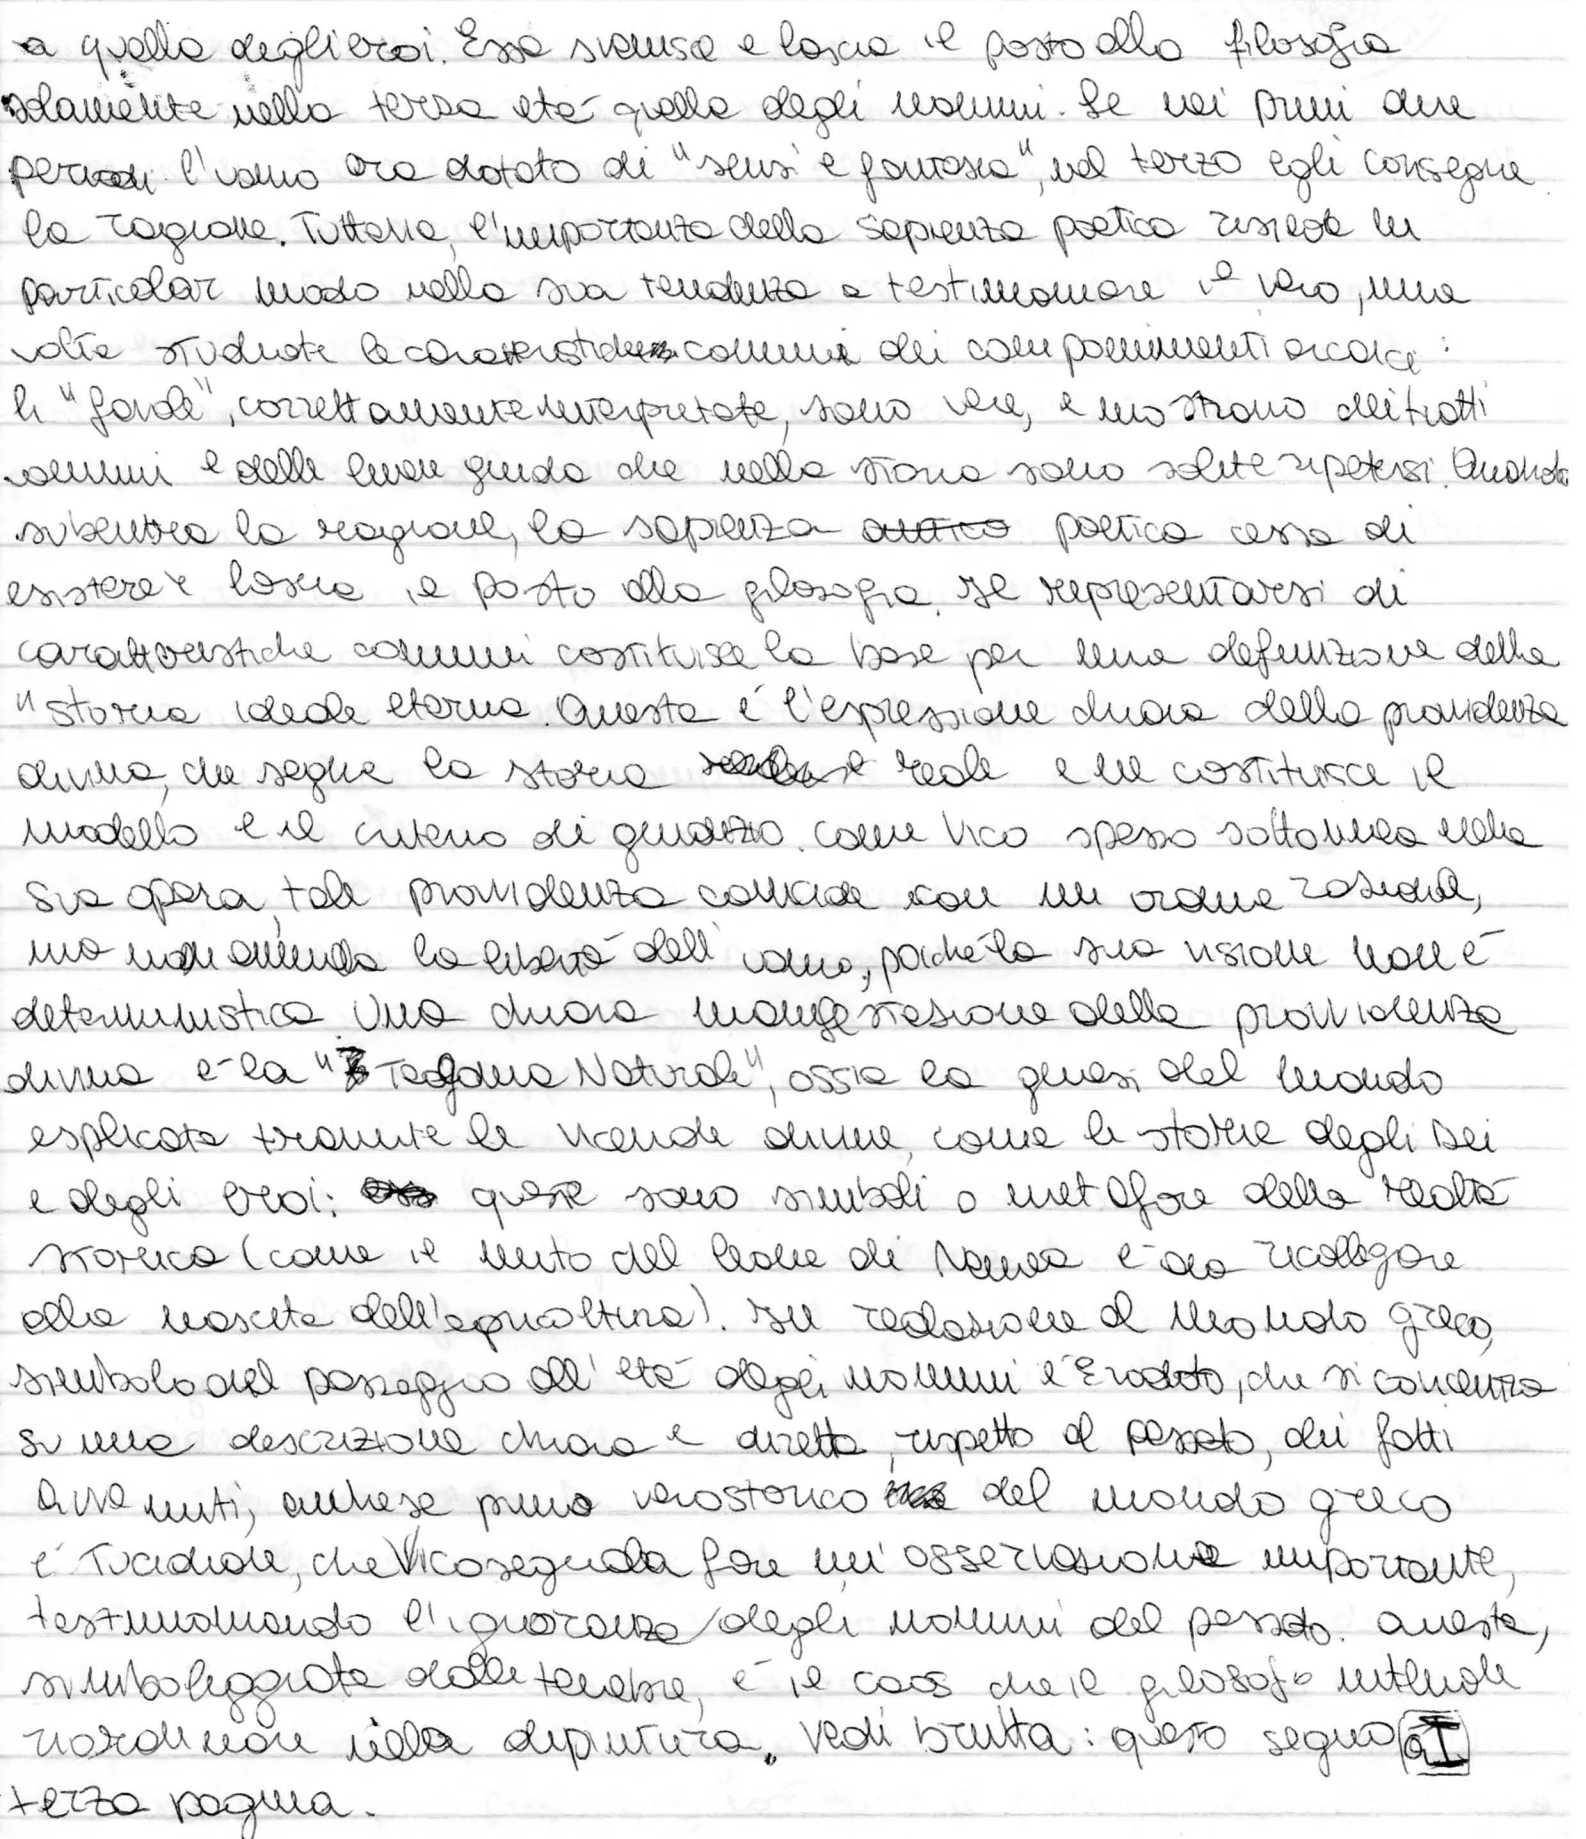 a quella degli eroi. Essa svanisce e lascia il posto alla filosofia
solamente nella terza età quella degli uomini. Se nei primi due
periodi l'uomo era dotato di "sensi e fantasia", nel terzo egli consegue
la ragione. Tuttavia, l'importanza della sapienza poetica risiede in
particolar modo nella sua tendenza a testimoniare il vero, una
volta studiate le caratteristiche comuni dei componimenti arcaici:
le "favole", correttamente interpretate, sono vere, e mostrano dei tratti
comuni e delle linee guida che nella storia sono solite ripetersi. Quando
subentra la ragione, la sapienza antica poetica cessa di
esistere e lascia il posto alla filosofia. Il ripresentarsi di
caratteristiche comuni costituisce la base per una definizione della
"storia ideale eterna. Questa è l'espressione chiara della provvidenza
divina, che segue la storia reale e ne costituisce il
modello e il criterio di giudizio. Come Vico spesso sottolinea nella
sua opera, tale provvidenza coincide con un ordine razionale,
ma non annulla la libertà dell' uomo, poiché la sua visione non è
deterministica. Una chiara manifestazione della provvidenza
divina è la "Teogonia Naturale", ossia la genesi del mondo
esplicata tramite le vicende divine, come le storie degli Dei
e degli eroi: queste sono simboli o metafore della realtà
storica (come il mito del leone di Nemea è da ricollegare
alla nascita dell'agricoltura). In relazione al mondo greco,
simbolo del passaggio all' età degli uomini è Erodoto, che si concentra
su una descrizione chiara e diretta, rispetto al passato, dei fatti
avvenuti, anche se primo vero storico del mondo greco
è Tucidide, che Vico segnala fare un' osservazione importante,
testimoniando l'ignoranza degli uomini del passato. Questa,
simboleggiata dalle tenebre, è il caos che il filosofo intende
riordinare nella dipintura. Vedi brutta: questo segno a I
terza pagina.